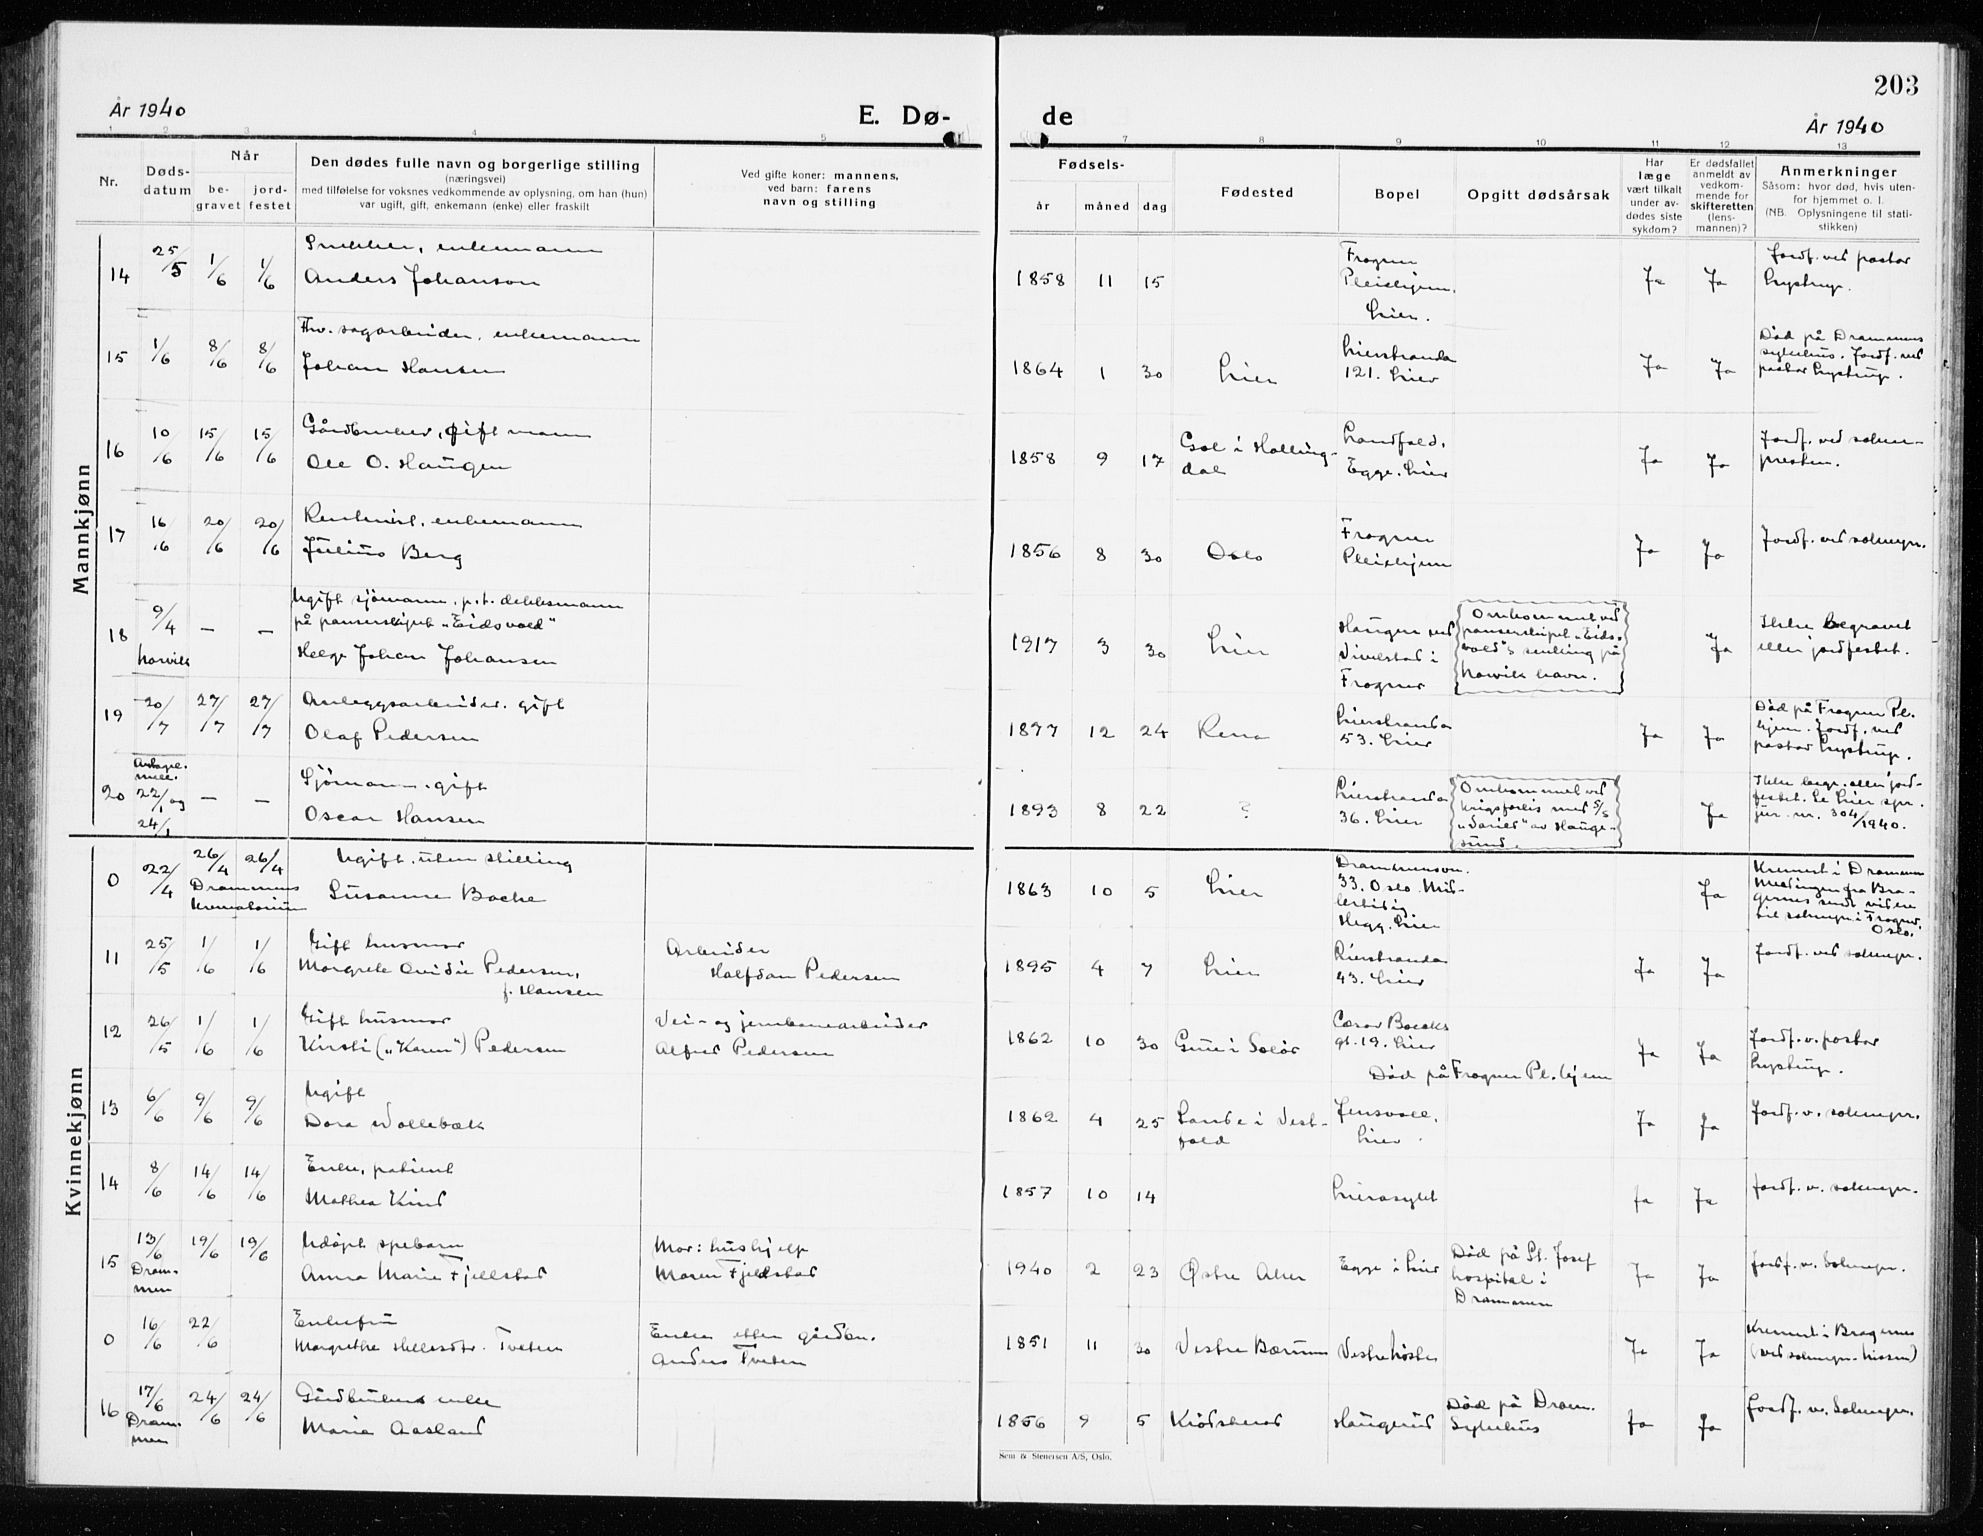 203
År 1940
E. Dø-
de
År 1940
1 2 3 4 5 7 8 9 10 11 12 13
Nr.
Døds-
datum
Når
be-
gravet
jord-
festet
Den dødes fulle navn og borgerlige stilling
(næringsvei)
med tilføielse for voksnes vedkommende av oplysning, om han (hun)
var ugift, gift, enkemann (enke) eller fraskilt
Ved gifte koner: mannens,
ved barn: farens
navn og stilling
Fødsels-
år
måned
dag
Fødested
Bopel
Opgitt dødsårsak
Har
læge
vært tilkalt
under av-
dødes siste
sykdom?
Er dødsfallet
anmeldt av
vedkom-
mende for
skifteretten
(lens-
mannen)?
Anmerkninger
Såsom: hvor død, hvis uten-
for hjemmet o. l.
(NB. Oplysningene til stati-
stikken)
Mannkjønn
14 25/5 1/6 1/6 Snekker, enkemann
Anders Johanson
1858 11 15 Frogner
Pleiehjem.
Lier.
Ja Ja Jordf. ved pastor
Lystrup.
15 1/6 8/6 8/6 Fhv. sagarbeider, enkemann
Johan Hansen
1864 1 30 Lier Lierstranda
121. Lier
Ja Ja Død på Drammens
sykehus. Jordf. ved
pastor Lystrup.
16 10/6 15/6 15/6 Gårdbruker, gift mann
Ole O. Haugen
1858 9 17 Gol i Halling-
dal
Landfald,
Egge. Lier
Ja Ja Jordf. ved sokne-
presten.
17 16/6 20/6 20/6 Rentenist, enkemann
Julius Berg
1856 8 30 Oslo Frogner
Pleiehjem
Ja Ja Jordf. ved soknepr.
18 9/4 Narvik — — Ugift sjömann, p.t. dekksmann
på panserskipet "Eidsvold"
Helge Johan Johansen
1917 3 30 Lier Haugen ved
Vivelstad i
Frogner
Omkommet ved
panserskipet "Eids-
vold"s senkning på
Narvik havn.
Ja Ikke begravet
eller jordfestet.
19 20/7 27/7 27/7 Anleggsarbeider. gift
Olaf Pedersen
1897 12 24 Rena Lierstranda
53. Lier
Ja Ja Død på Frogner Pl.
hjem. Jordf. ved
pastor Lystrup.
20 Antagel.
mell.
22/1 og
24/1
— — Sjömann. gift
Oscar Hansen
1893 8 22 ? Lierstranda
36. Lier
Omkommet ved
krigsforlis med S/S
"Varild" av Hauge-
sund.
Ja Ikke begr. eller jord-
festet. Se Lier spr.
jur. nr. 304/1940.
Kvinnekjønn
0 22/4 26/4 26/4
Drammens
krematorium
Ugift, uten stilling
Susanne Bache
1863 10 5 Lier Drammensvn.
33. Oslo. Mid-
lertidig
Hegg. Lier
Ja Kremert i Drammen
Meldingen fra Bra-
gernes sendt videre
til soknepr. i Frogner,
Oslo.
11 25/5 1/6 1/6 Gift husmor
Margrete Ovidie Pedersen,
f. Hansen
Arbeider
Halfdan Pedersen
1895 4 7 Lier Lierstranda
43. Lier
Ja Ja Jordf. ved soknepr.
12 26/5 1/6 1/6 Gift husmor
Kirsti ("Karen") Pedersen
Vei- og jernbanearbeider
Alfred Pedersen
1862 10 30 Grue i Solör Cæsar Boecks
gt. 19. Lier
Død på Frogner Pl. hjem
Ja Ja Jordf. v. pastor
Lystrup.
13 6/6 9/6 9/6 Ugift
Dora Wollebæk
1862 4 25 Sande i Vest-
fold
Jensvoll,
Lier.
Ja Ja Jordf. v. soknepr.
14 8/6 14/6 14/6 Enke, patient
Mathea Kind
1857 10 14 Lierasylet
Ja Ja Jordf. v. soknepr.
15 13/6
Dram-
men
19/6 19/6 Udøpt spebarn
Anna Marie Fjellstad
Mor: hushjelp
Maren Fjeldstad
1940 2 23 Østre Aker Egge i Lier
Død på St. Josef
hospital i
Drammen
Ja Ja Jordf. v. Soknepr.
0 16/6 22/6 Enkefru
Margrethe Hellesdtr. Tveten
Enke etter gårdbr.
Anders Tveten
1851 11 30 Vestre Bærum Vestre
Ja Ja Kremert i Bragernes
(ved soknepr. Nissen)
16 17/6
Dram-
men
24/6 24/6 Gårdbrukers enke
Maria Aasland
1856 9 5 Krödsherad Haugerud
Død på Dram.
Sykehus
Ja Ja Jordf. v. Soknepr.
Sem & Stenersen A/S, Oslo.